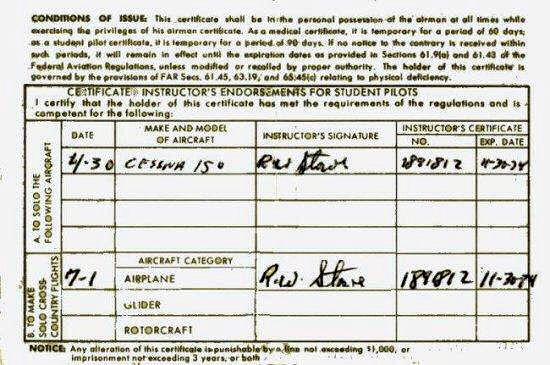 CONDITIONS OF ISSUE: This certificate shall be in the personal possession of the airman at all times while
exercising the privileges of his airman certificate. As a medical certificate, it is temporary for a period of 60 days;
as a student pilot certificate, it is temporary for a period of 90 days. If no notice to the contrary is received within
such periods, it will remain in effect until the expiration dates as provided in Sections 61.9(a) and 61.43 of the
Federal Aviation Regulations, unless modified or recalled by proper authority. The holder of this certificate is
governed by the provisions of FAR Secs. 61.45, 63.19, and 65.45(c) relating to physical deficiency.
CERTIFICATED INSTRUCTOR'S ENDORSEMENTS FOR STUDENT PILOTS
I certify that the holder of this certificate has met the requirements of the regulations and is
competent for the following:
DATE MAKE AND MODEL OF AIRCRAFT INSTRUCTOR'S SIGNATURE INSTRUCTOR'S CERTIFICATE NO. EXP. DATE
A. TO SOLO THE FOLLOWING AIRCRAFT
4-30 CESSNA 150 R.W. 1891812 11-30-74
B. TO MAKE SOLO CROSS-COUNTRY FLIGHTS
AIRCRAFT CATEGORY
7-1 AIRPLANE R.W. 1891812 11-30-74
GLIDER
ROTORCRAFT
NOTICE: Any alteration of this certificate is punishable by a fine not exceeding $1,000, or
imprisonment not exceeding 3 years, or both